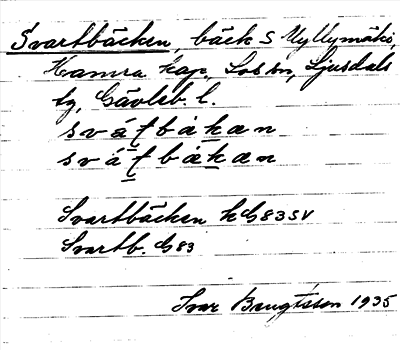 Svartbäcken, bäck S Nyllymäki,
Hamra kap., Los sn, Ljusdals
tg, Gävleb. l.
svátbàkæn
svátbàkæn
Svartbäcken hG83SV
Svartb. G83
Ivar Bengtsson 1935